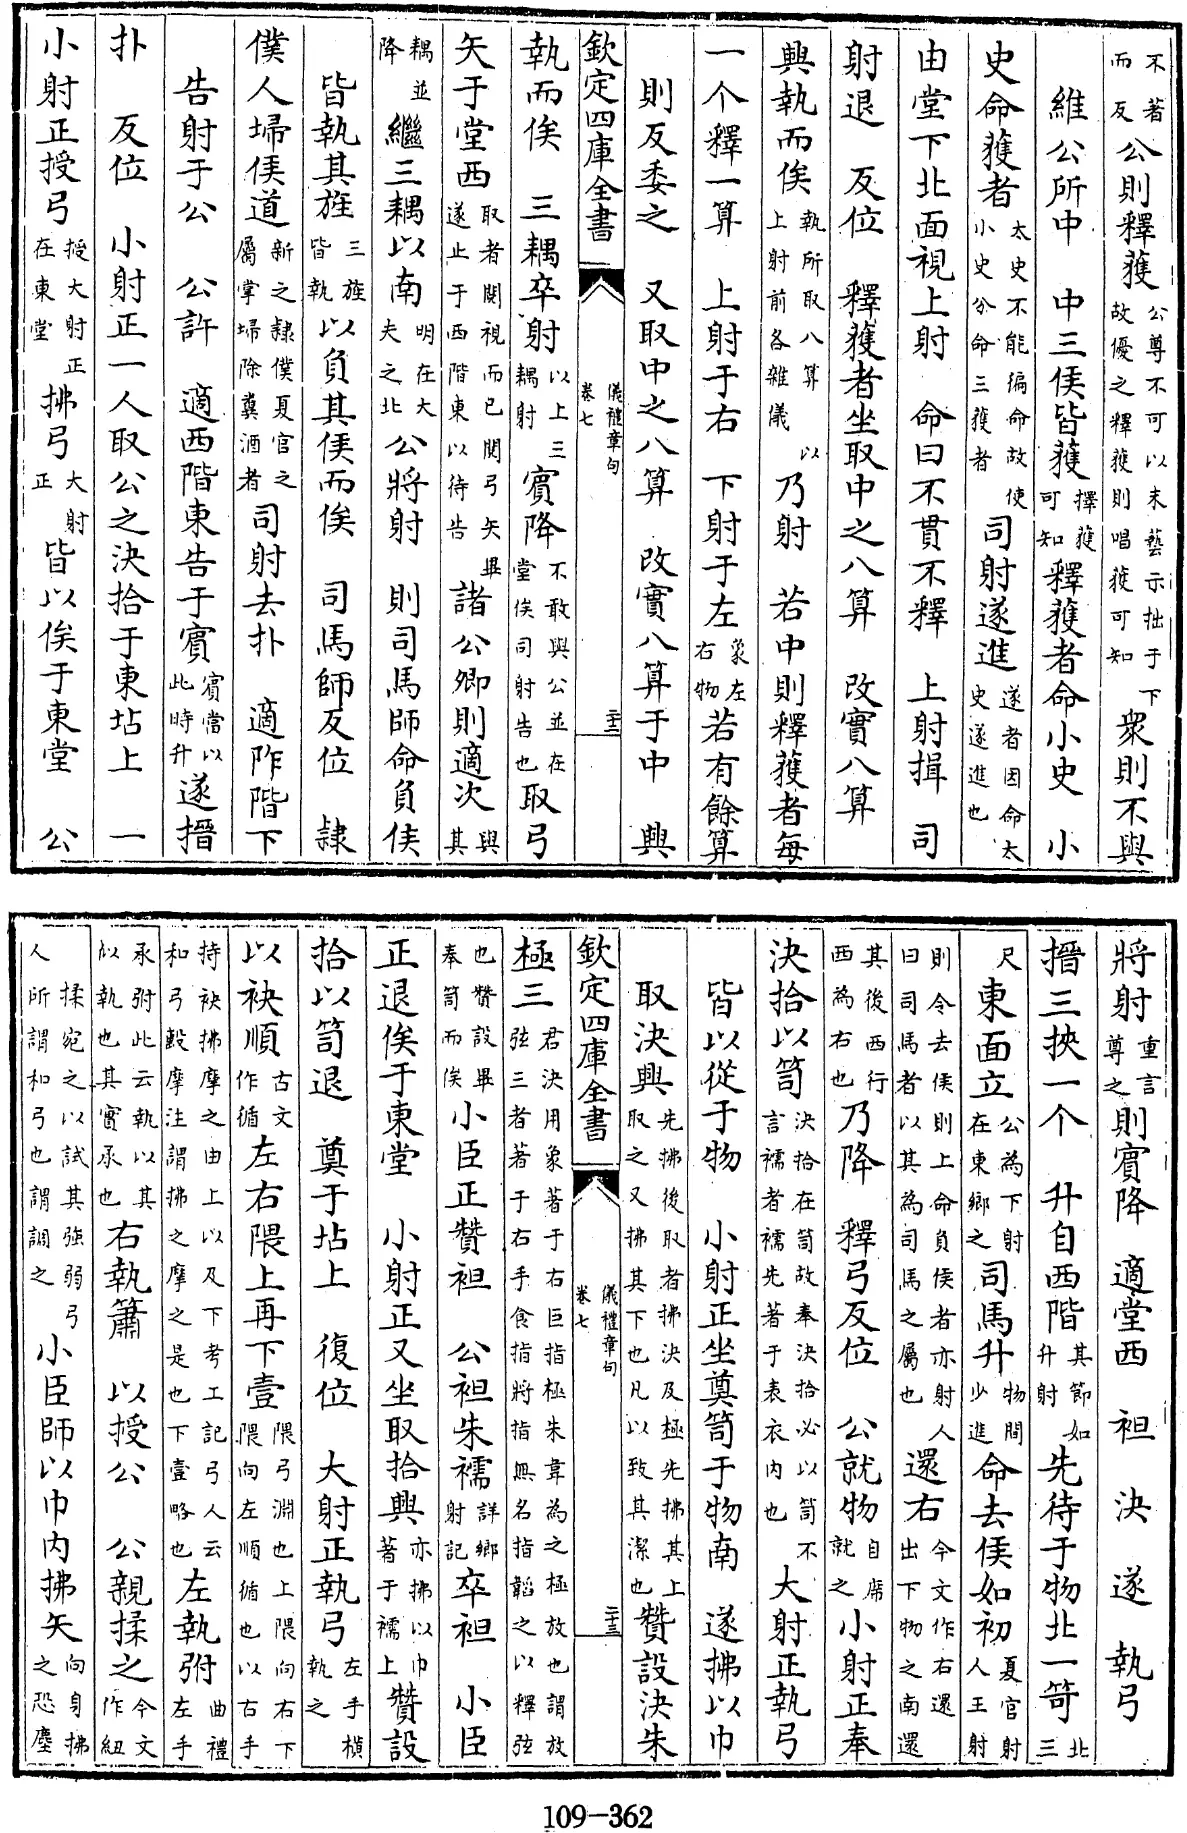 不著而反公則釋獲公尊不可以末藝示拙于下故優之釋獲則唱獲可知衆則不與
維公所中　中三侯皆獲擇獲可知釋獲者命小史　小
史命獲者太史不能徧命故使小史分命三獲者司射遂進遂者因命太史遂進也
由堂下北面視上射　命曰不貫不釋　上射揖　司
射退　反位　釋獲者坐取中之八算　改實八算
興執而俟執所取八算以上射前各雜儀乃射　若中則釋獲者每
一个釋一算　上射于右　下射于左象左右物若有餘算
則反委之　又取中之八算　改實八算于中　興
欽定四庫全書　儀禮章句卷七　二十二
執而俟　三耦卒射以上三耦射賓降不敢與公並在堂俟司射告也取弓
矢于堂西取者閱視而已閱弓矢畢遂止于西階東以待告諸公卿則適次與其
耦並降繼三耦以南明在大夫之北公將射　則司馬師命負侯
皆執其旌三旌皆執以負其侯而俟　司馬師反位　隸
僕人埽侯道新之隸僕夏官之屬掌埽除糞洒者司射去扑　適阼階下
告射于公　公許　適西階東告于賓賓當以此時升遂搢
扑　反位　小射正一人取公之決拾于東坫上　一
小射正授弓授大射正在東堂拂弓大射正皆以俟于東堂　公
將射重言尊之則賓降　適堂西　袒　決　遂　執弓
搢三挾一个　升自西階其節如升射先待于物北一笴北三
尺東面立公為下射在東鄉之司馬升物間少進命去侯如初夏官射人王射
則令去侯則上命負侯者亦射人曰司馬者以其為司馬之屬也還右今文作右還出下物之南還
其後西行西為右也乃降　釋弓反位　公就物自席就之小射正奉
決拾以笥決拾在笥故奉決拾必以笥不言襦者襦先著于表衣內也大射正執弓
皆以從于物　小射正坐奠笥于物南　遂拂以巾
取決興先拂後取者拂決及極先拂其上取之又拂其下也凡以致其潔也贊設決朱
欽定四庫全書　儀禮章句卷七　二十三
極三君決用象著于右巨指極朱韋為之極放也謂放弦三者著于右手食指將指無名指韜之以釋弦
也贊設畢奉笥而俟小臣正贊袒　公袒朱襦詳鄉射記卒袒　小臣
正退俟于東堂　小射正又坐取拾興亦拂以巾著于襦上贊設
拾以笥退　奠于坫上　復位　大射正執弓左手橫執之
以袂順古文作循左右隈上再下壹隈弓淵也上隈向右下隈向左順循也以右手
持袂拂摩之由上以及下考工記弓人云和弓毄摩注謂拂之摩之是也下壹略也左執弣曲禮左手
承弣此云執以其似執也其實承也右執簫　以授公　公親揉之今文作紐
揉宛之以試其強弱弓人所謂和弓也謂調之小臣師以巾內拂矢向身拂之恐塵
109-362